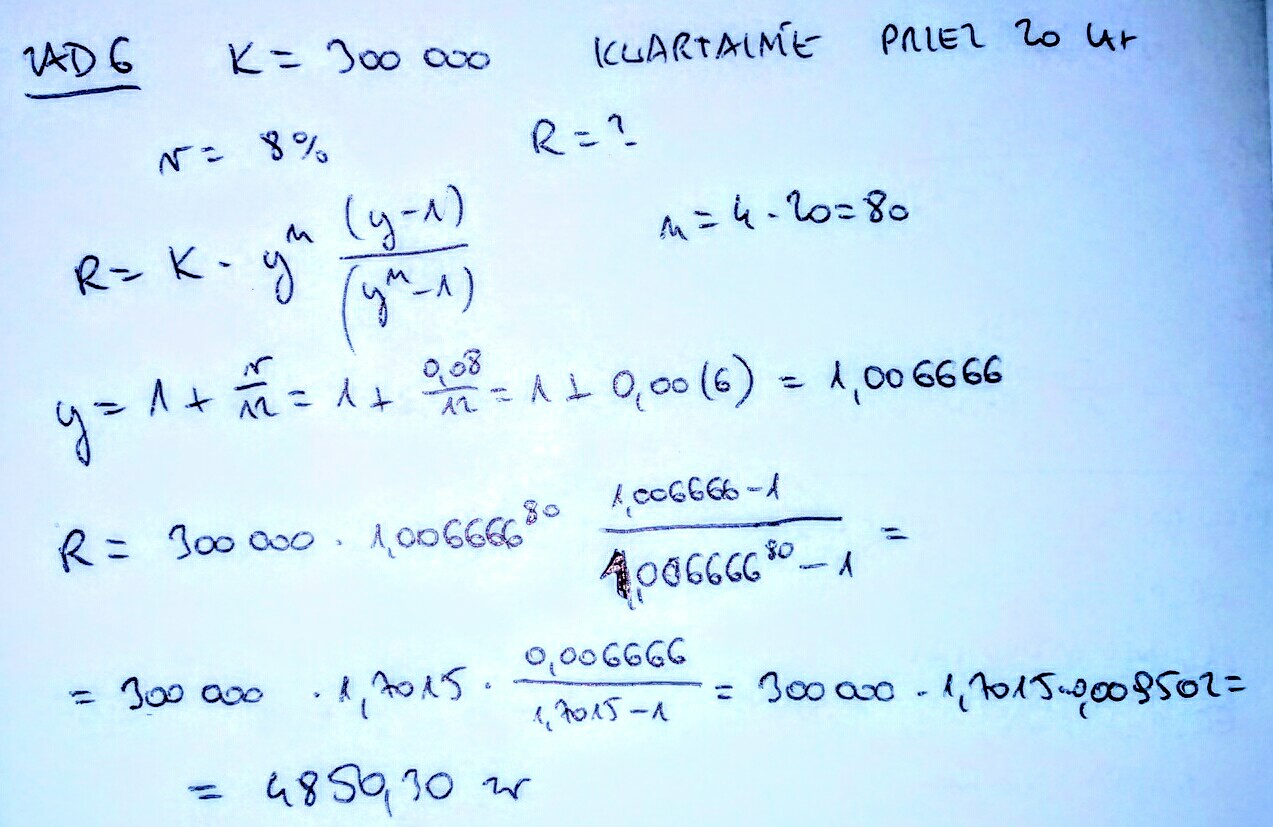 ZAD 6 K = 300 000 KWARTALNIE PRZEZ 20 lat
r = 8% R = ?
R = K · y^n (y-1)/(y^n-1) n = 4 · 20 = 80
y = 1 + r/12 = 1 + 0,08/12 = 1 + 0,00(6) = 1,006666
R = 300 000 · 1,006666^80 (1,006666-1)/(1,006666^80-1) =
= 300 000 · 1,7015 · 0,006666/(1,7015-1) = 300 000 · 1,7015 · 0,009502 =
= 4850,30 zł